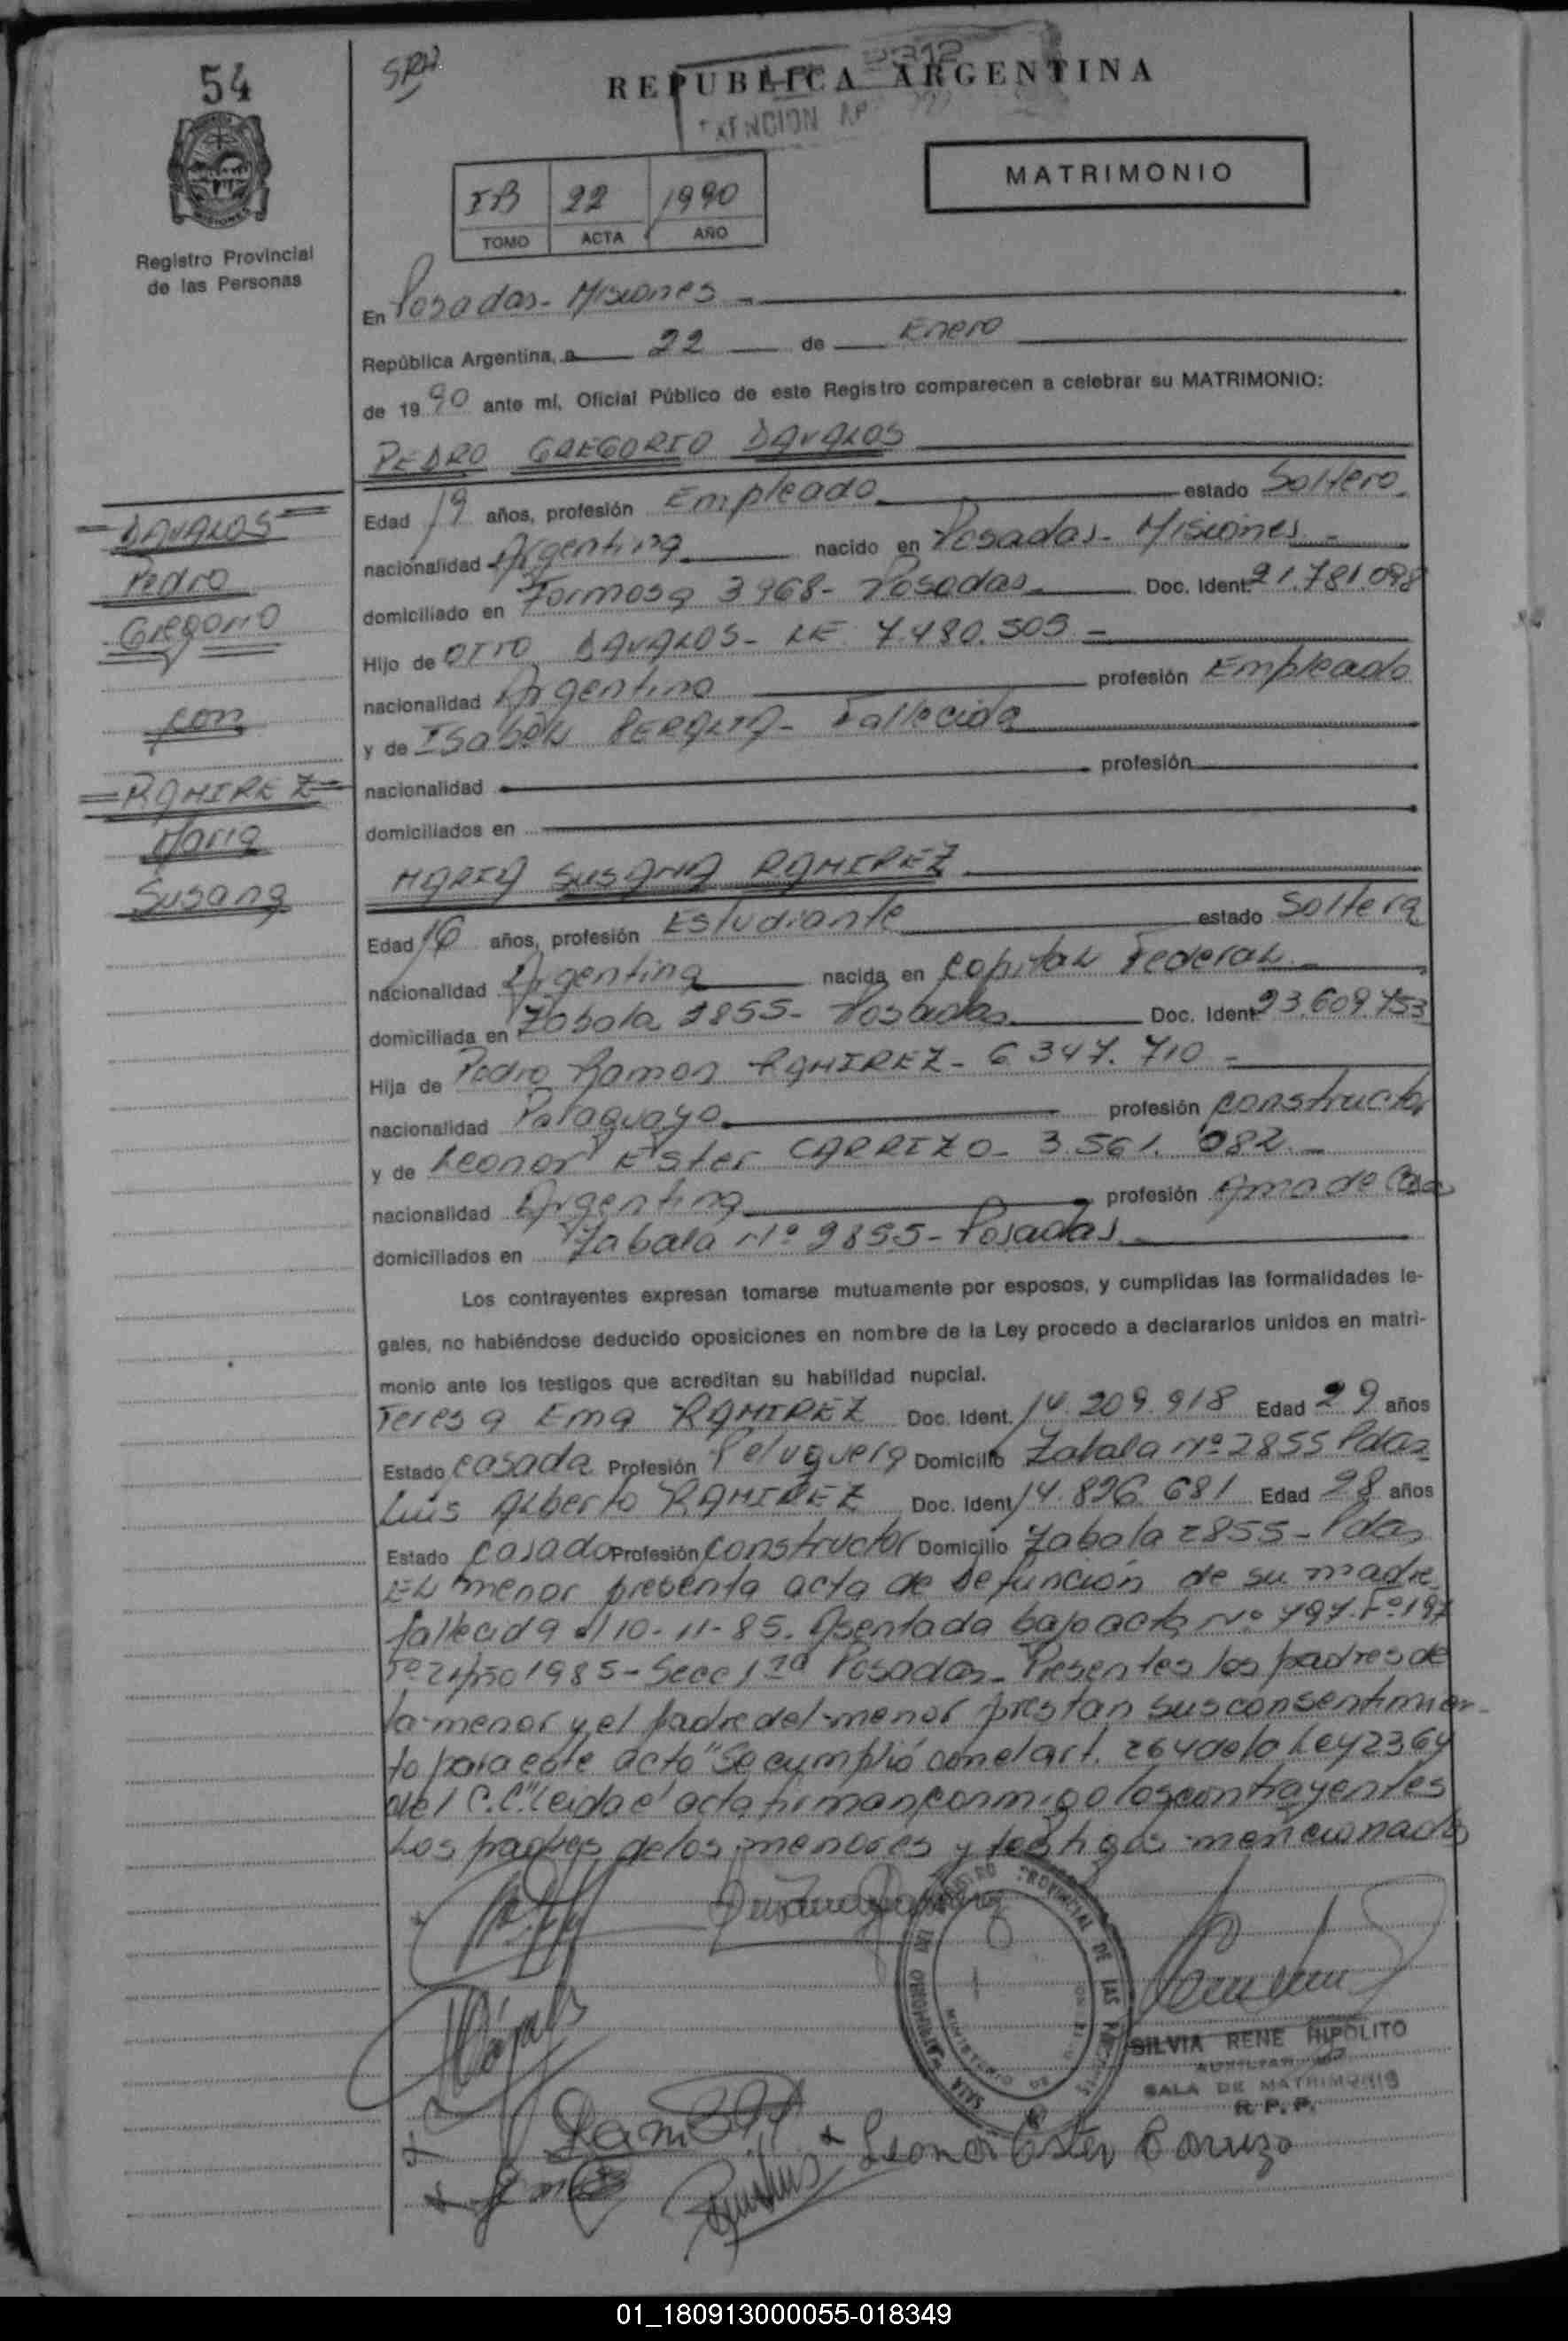 54
SRH
REPUBLICA ARGENTINA
MATRIMONIO
IB 22 1990
TOMO ACTA AÑO
Registro Provincial
de las Personas
En Posadas - Misiones
República Argentina, a 22 de Enero
de 1990 ante mí, Oficial Público de este Registro comparecen a celebrar su MATRIMONIO:
PEDRO GREGORIO DAVALOS
Edad 19 años, profesión Empleado estado Soltero
nacionalidad Argentina nacido en Posadas - Misiones
domiciliado en Formosa 3968 - Posadas Doc. Ident. 21.781.098
Hijo de OTTO DAVALOS - LE 7.480.505
nacionalidad Argentina profesión Empleado
y de Isabel PERALTA - Fallecida
nacionalidad profesión
domiciliados en
MARIA SUSANA RAMIREZ
Edad 16 años, profesión Estudiante estado Soltera
nacionalidad Argentina nacida en Capital Federal
domiciliada en Zabala 2855 - Posadas Doc. Ident. 23.609.753
Hija de Pedro Ramon RAMIREZ - 6.347.710
nacionalidad Paraguayo profesión constructor
y de Leonor Ester CARRIZO - 3.561.082
nacionalidad Argentina profesión Ama de Casa
domiciliados en Zabala Nº 2855 - Posadas
Los contrayentes expresan tomarse mutuamente por esposos, y cumplidas las formalidades le-
gales, no habiéndose deducido oposiciones en nombre de la Ley procedo a declararlos unidos en matri-
monio ante los testigos que acreditan su habilidad nupcial.
Teresa Ema RAMIREZ Doc. Ident. 14.209.918 Edad 29 años
Estado casada Profesión Peluquera Domicilio Zabala Nº 2855 Pdas
Luis Alberto RAMIREZ Doc. Ident 14.826.681 Edad 28 años
Estado casado Profesión constructor Domicilio Zabala 2855 - Pdas
El menor presenta acta de defunción de su madre
fallecida el 10-11-85. Asentada bajo acta Nº 797. Fº 197
Tº 2 Año 1985 - Secc 1ra Posadas - Presentes los padres de
la menor y el padre del menor prestan sus consentimien-
to para este acto "Se cumplió con el art. 264 de la Ley 2364
del C.C." Leida el acta firman conmigo los contrayentes
Los padres de los menores y testigos mencionados
DAVALOS
Pedro
Gregorio
con
RAMIREZ
Maria
Susana
REGISTRO PROVINCIAL DE LAS PERSONAS
SALA MATRIMONIO
MINISTERIO DE GOBIERNO
SILVIA RENE HIPOLITO
AUXILIAR
SALA DE MATRIMONIO
R. P. P.
Leonor Ester Carrizo
01_180913000055-018349